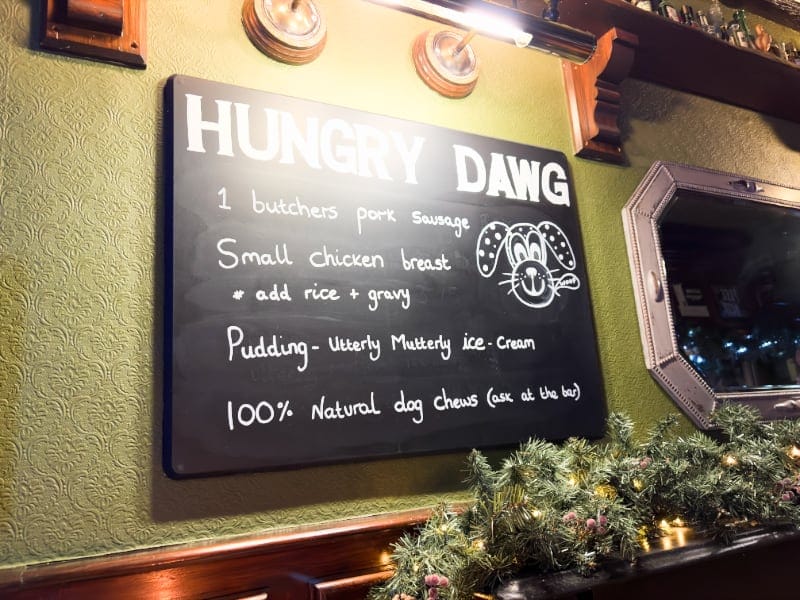 HUNGRY DAWG
1 butchers pork sausage
Small chicken breast
* add rice + gravy
Pudding - Utterly Mutterly ice-cream
100% Natural dog chews (ask at the bar)